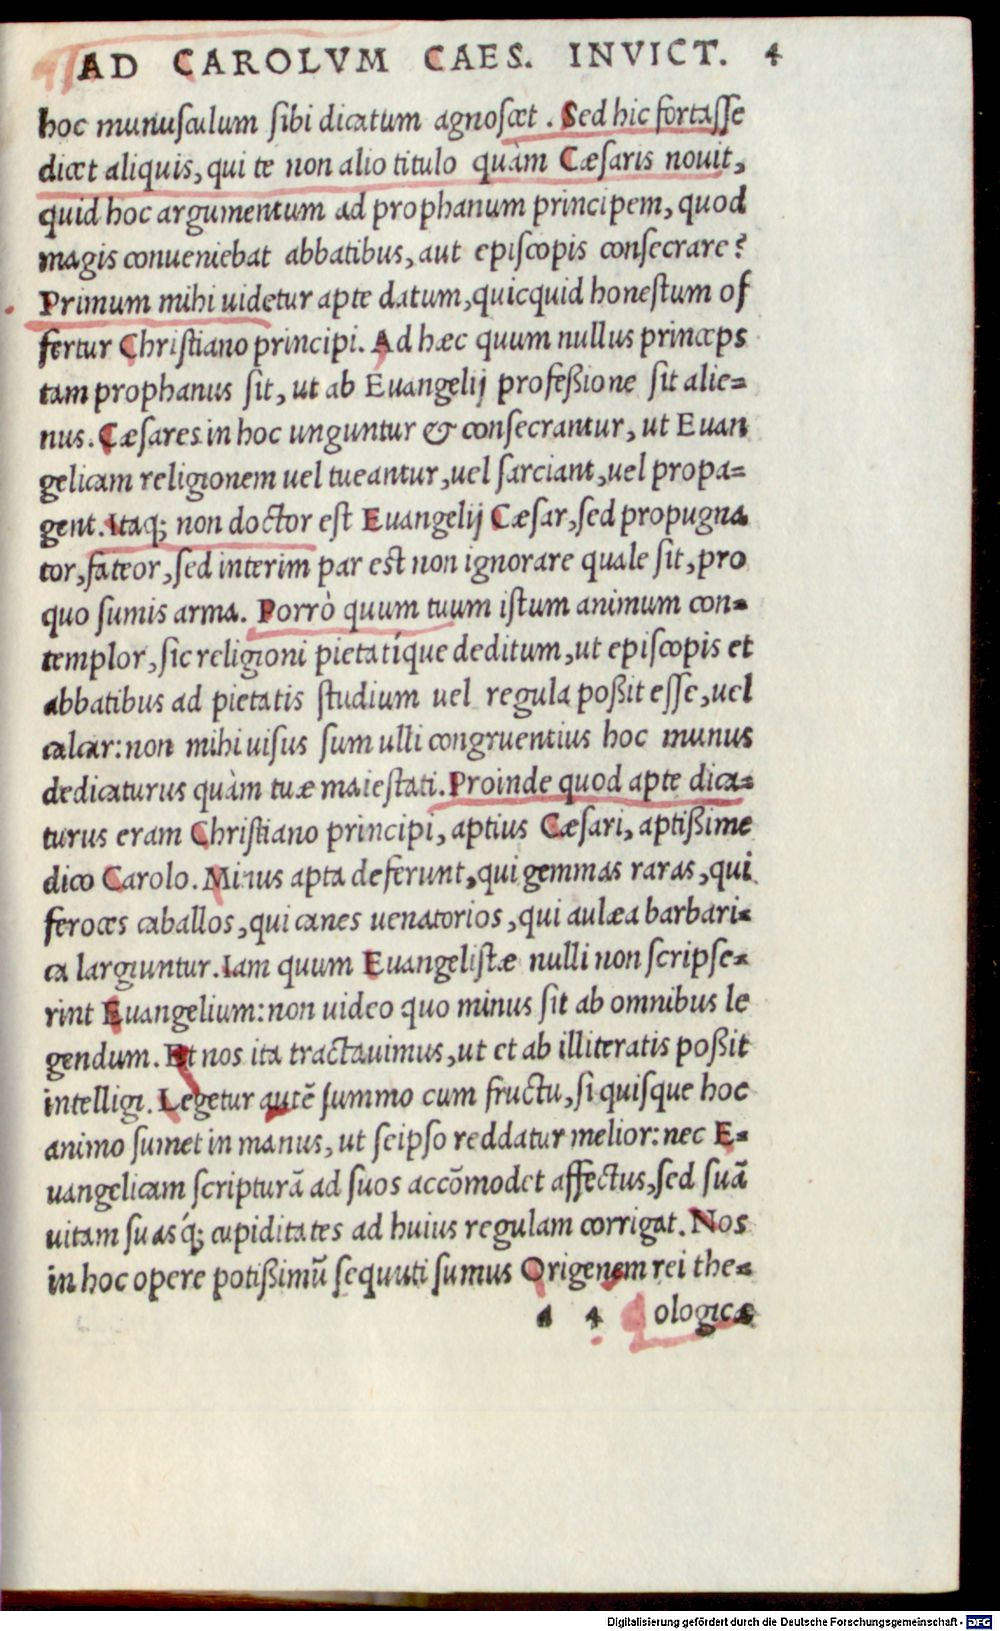 AD CAROLVM CAES. INVICT. 4
hoc munusculum sibi dicatum agnoscet. Sed hic fortasse
dicet aliquis, qui te non alio titulo quàm Cæsaris nouit,
quid hoc argumentum ad prophanum principem, quod
magis conueniebat abbatibus, aut episcopis consecrare?
Primum mihi uidetur apte datum, quicquid honestum of
fertur Christiano principi. Ad hæc quum nullus princeps
tam prophanus sit, ut ab Euangelij profeßione sit alie=
nus. Cæsares in hoc unguntur & consecrantur, ut Euan
gelicam religionem uel tueantur, uel sarciant, uel propa=
gent. Itaq; non doctor est Euangelij Cæsar, sed propugna
tor, fateor, sed interim par est non ignorare quale sit, pro
quo sumis arma. Porrò quum tuum istum animum con=
templor, sic religioni pietatíque deditum, ut episcopis et
abbatibus ad pietatis studium uel regula poßit esse, uel
calcar: non mihi uisus sum ulli congruentius hoc munus
dedicaturus quàm tuæ maiestati. Proinde quod apte dica=
turus eram Christiano principi, aptius Cæsari, aptißime
dico Carolo. Minus apta deferunt, qui gemmas raras, qui
feroces caballos, qui canes uenatorios, qui aulæa barbari=
ca largiuntur. Iam quum Euangelistæ nulli non scripse=
rint Euangelium: non uideo quo minus sit ab omnibus le
gendum. Et nos ita tractauimus, ut et ab illiteratis poßit
intelligi. Legetur autē summo cum fructu, si quisque hoc
animo sumet in manus, ut seipso reddatur melior: nec E=
uangelicam scripturā ad suos accōmodet affectus, sed suā
uitam suasq́; cupiditates ad huius regulam corrigat. Nos
in hoc opere potißimū sequuti sumus Origenem rei the=
a 4 ologicæ
Digitalisierung gefördert durch die Deutsche Forschungsgemeinschaft - DFG